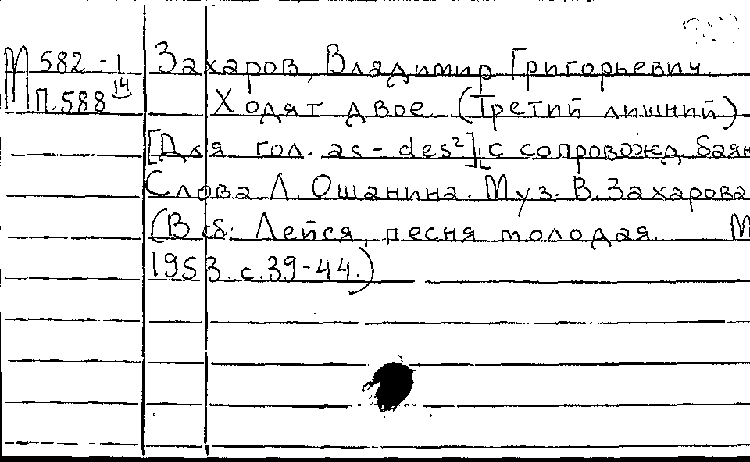 М 582-1/14 Захаров, Владимир Григорьевич.
П.588 Ходят двое. (Третий лишний)
[Для гол. as-des²] с сопровожд. баян
Слова Л. Ошанина. Муз. В. Захарова
(В сб: Лейся, песня молодая. М
1953. с. 39-44.)